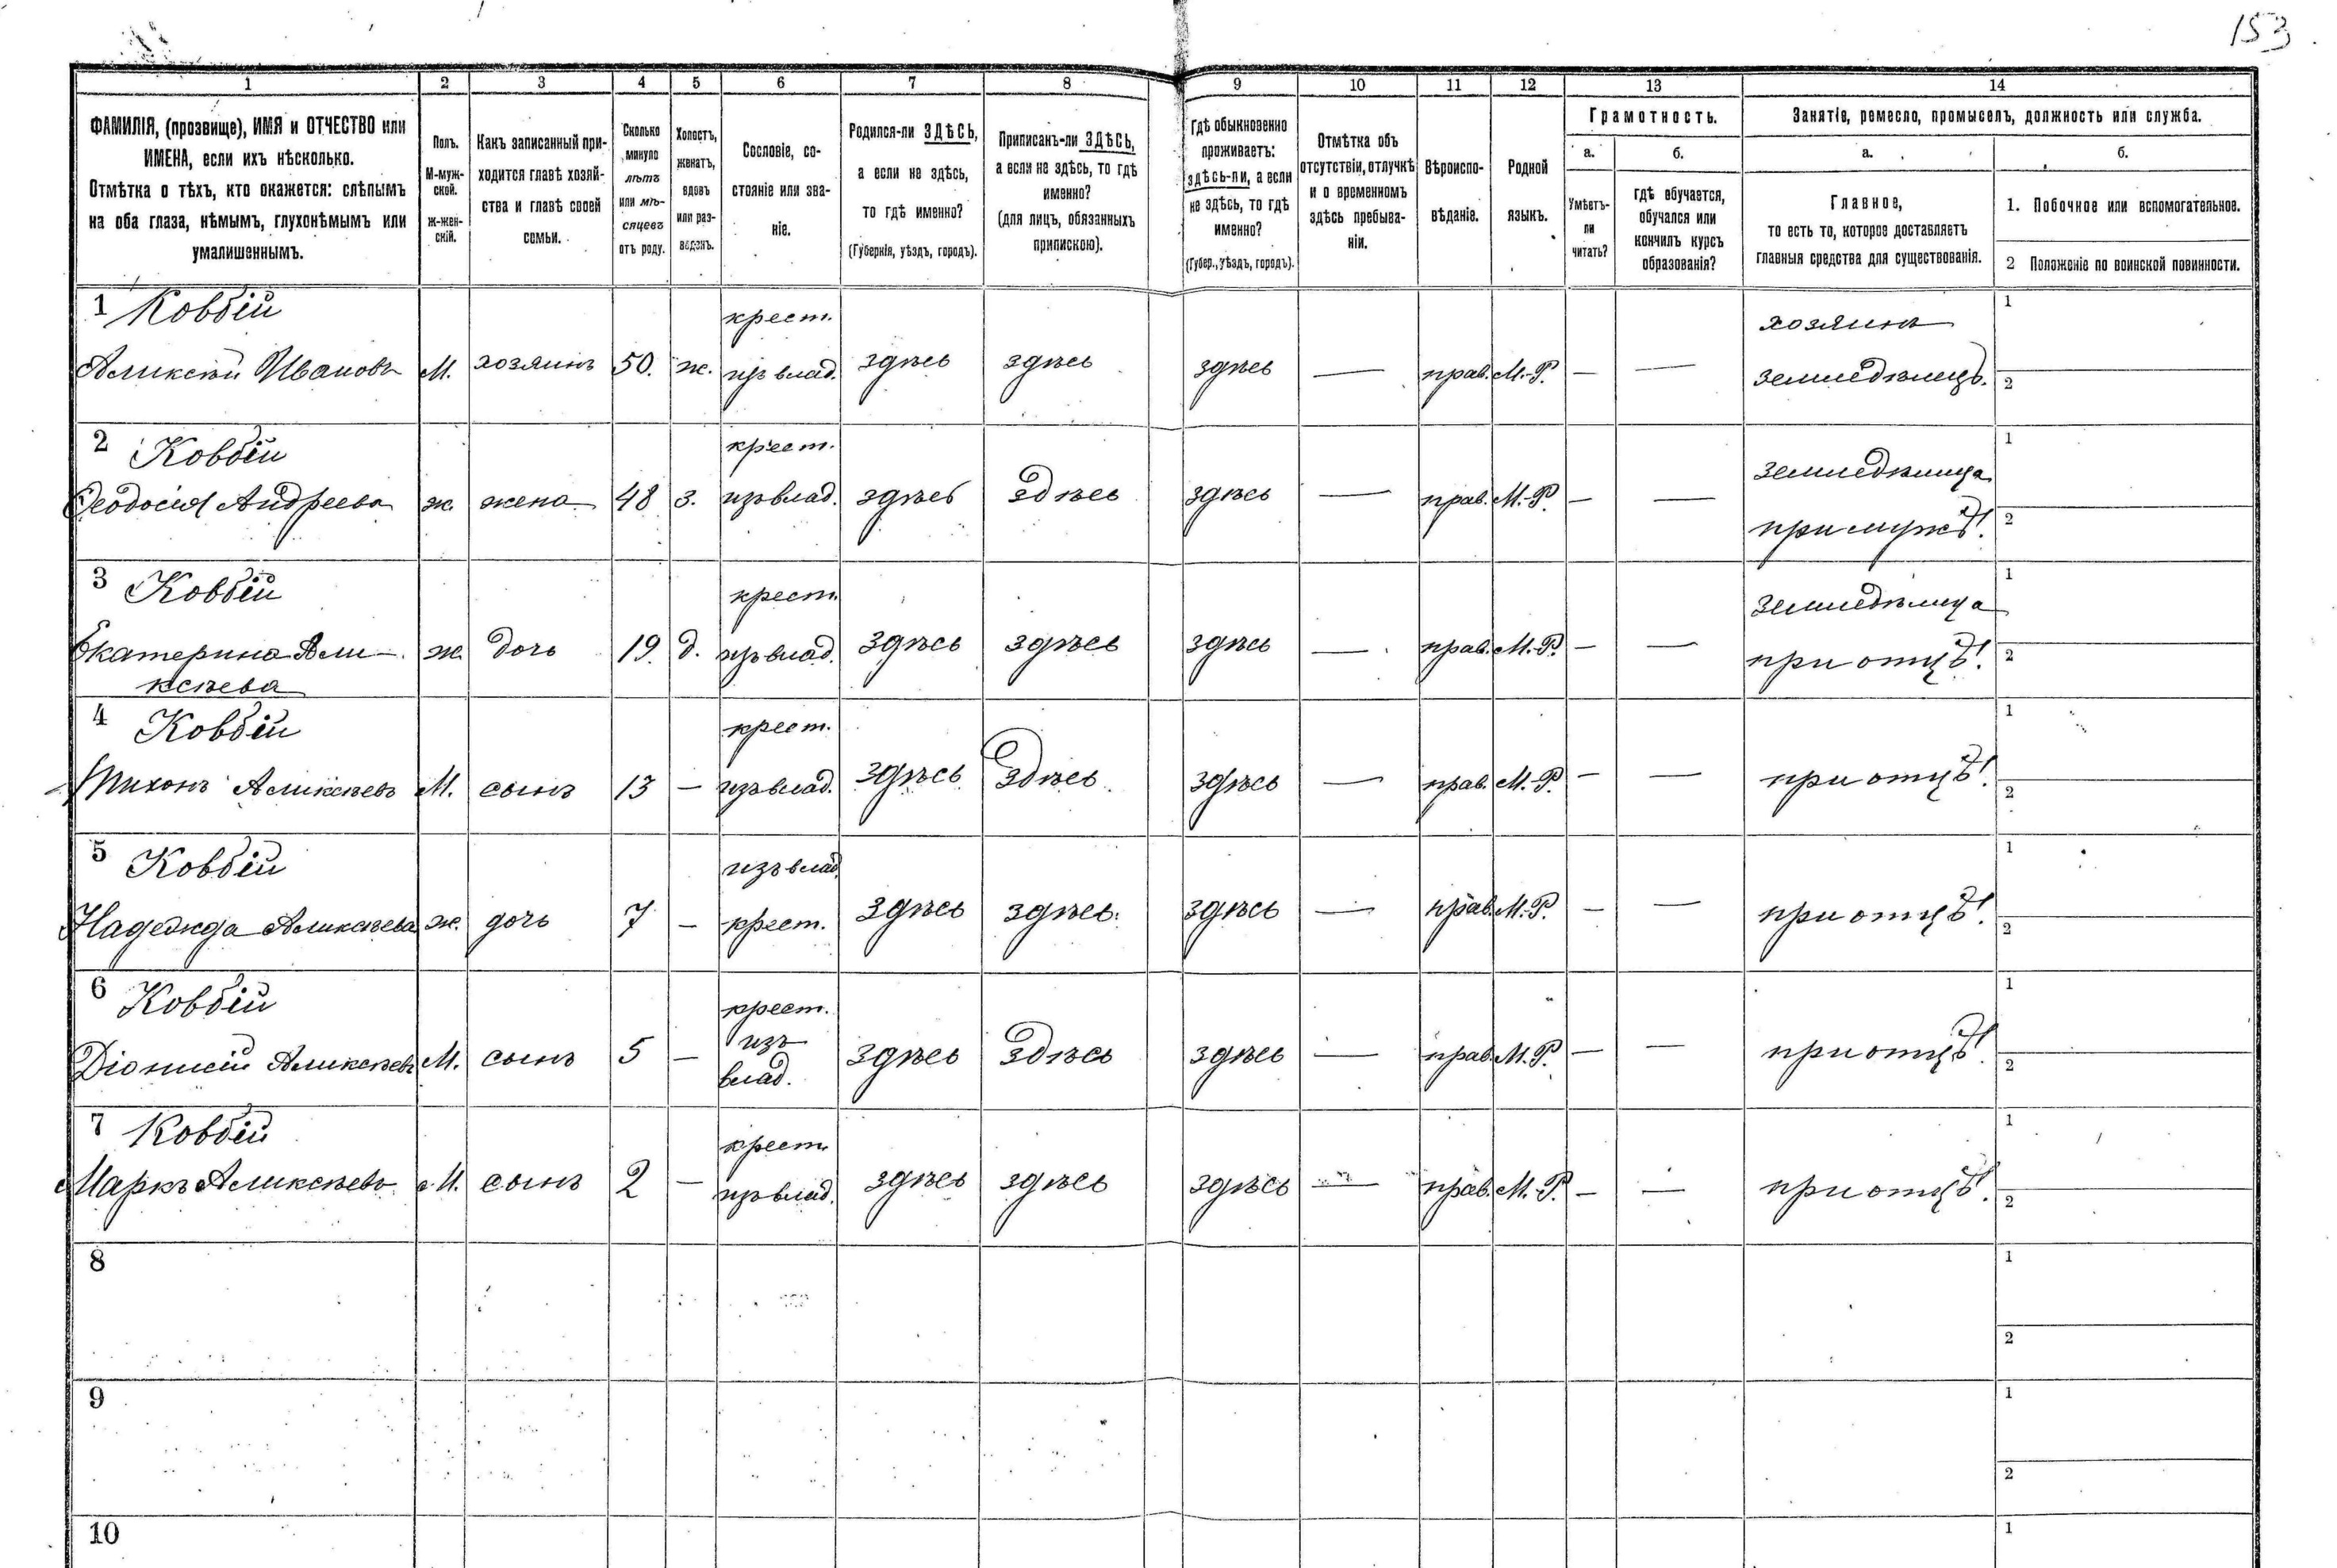 153
1 2 3 4 5 6 7 8 9 10 11 12 13 14
ФАМИЛІЯ, (прозвище), ИМЯ и ОТЧЕСТВО или
ИМЕНА, если ихъ нѣсколько.
Отмѣтка о тѣхъ, кто окажется: слѣпымъ
на оба глаза, нѣмымъ, глухонѣмымъ или
умалишеннымъ.
Полъ.
М-муж-
ской.
ж-жен-
скій.
Какъ записанный при-
ходится главѣ хозяй-
ства и главѣ своей
семьи.
Сколько
минуло
лѣтъ
или мѣ-
сяцевъ
отъ роду.
Холостъ,
женатъ,
вдовъ
или раз-
веденъ.
Сословіе, со-
стояніе или зва-
ніе.
Родился-ли ЗДѢСЬ,
а если не здѣсь,
то гдѣ именно?
(Губернія, уѣздъ, городъ).
Приписанъ-ли ЗДѢСЬ,
а если не здѣсь, то гдѣ
именно?
(для лицъ, обязанныхъ
припискою).
Гдѣ обыкновенно
проживаетъ:
здѣсь-ли, а если
не здѣсь, то гдѣ
именно?
(Губер., уѣздъ, городъ).
Отмѣтка объ
отсутствіи, отлучкѣ
и о временномъ
здѣсь пребыва-
ніи.
Вѣроиспо-
вѣданіе.
Родной
языкъ.
Грамотность.
а. б.
Умѣетъ-
ли
читать?
гдѣ обучается,
обучался или
кончилъ курсъ
образованія?
Занятіе, ремесло, промыселъ, должность или служба.
а. б.
Главное,
то есть то, которое доставляетъ
главныя средства для существованія.
1. Побочное или вспомогательное.
2 Положеніе по воинской повинности.
1 Ковбій крест. хозяинъ 1
Аликсѣй Ивановъ М. хозяинъ 50. ж. изъ влад. здѣсь здѣсь здѣсь — прав. М.-Р. — — земледѣлецъ. 2
2 Ковбій крест. земледѣлица 1
Феодосія Андреева ж. жена 48 з. изъ влад. здѣсь здѣсь здѣсь — прав. М.-Р. — — при мужѣ! 2
3 Ковбій крест. земледѣлица 1
Екатерина Али- ж. дочь 19. д. изъ влад. здѣсь здѣсь здѣсь — прав. М.-Р. — — при отцѣ! 2
ксѣева
4 Ковбій крест. 1
Тихонъ Аликсѣевъ М. сынъ 13 — изъ влад. здѣсь здѣсь здѣсь — прав. М.-Р. — — при отцѣ! 2
5 Ковбій изъ влад. 1
Надежда Аликсѣева ж. дочь 7 — крест. здѣсь здѣсь здѣсь — прав. М.-Р. — — при отцѣ! 2
6 Ковбій крест. 1
изъ
Діонисій Аликсѣевъ М. сынъ 5 — влад. здѣсь здѣсь здѣсь — прав. М.-Р. — — при отцѣ! 2
7 Ковбій крест. 1
Маркъ Аликсѣевъ М. сынъ 2 — изъ влад. здѣсь здѣсь здѣсь — прав. М.-Р. — — при отцѣ! 2
8 1
2
9 1
2
10 1